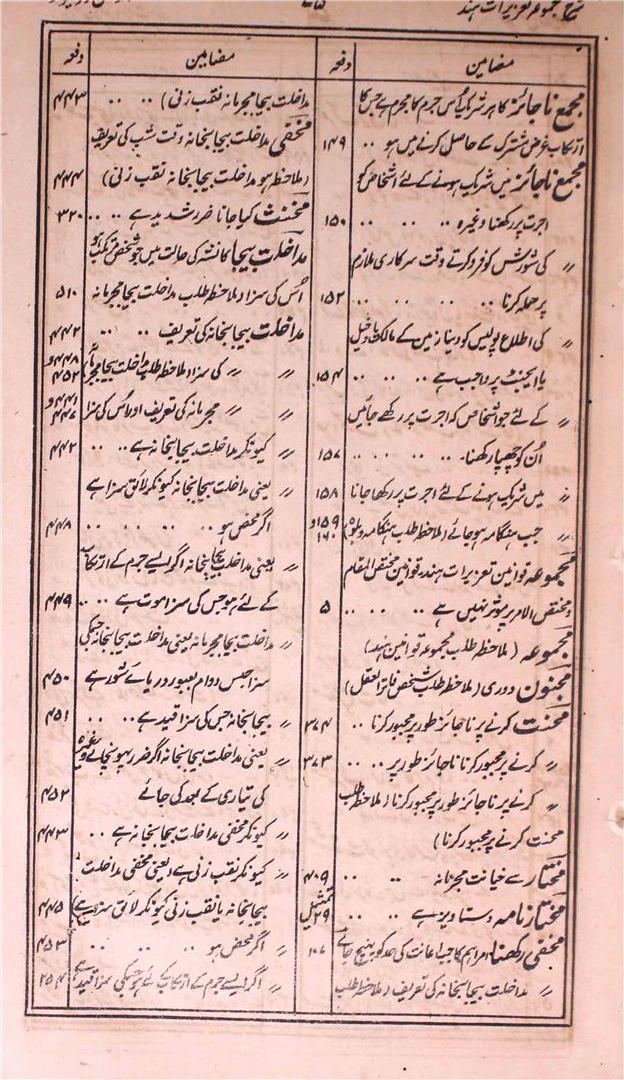 شرح مجموعہ تعزیرات ہند
مضامین
دفعہ
مجمع ناجائز کا ہر شریک اُس جرم کا مجرم ہے جس کا
ارتکاب غرض مشترک کے حاصل کرنے میں ہو ۔۔ ۱۴۹
مجمع ناجائز میں شریک ہونے کے لئے اشخاص کو
اجرت پر رکھنا وغیرہ ۔۔ ۔۔ ۔۔ ۱۵۰
〃 کی شورش کو فرو کرتے وقت سرکاری ملازم
پر حملہ کرنا ۔۔ ۔۔ ۔۔ ۔۔ ۱۵۲
〃 کی اطلاع پولیس کو دینا زمین کے مالک یا دخیل
یا ایجنٹ پر واجب ہے ۔۔ ۔۔ ۱۵۴
〃 کے لئے جو اشخاص کہ اجرت پر رکھے جائیں
اُن کو چھپا رکھنا۔ ۔۔ ۔۔ ۔۔ ۱۵۷
〃 میں شریک ہونے کے لئے اجرت پر رکھا جانا ۱۵۸
〃 جب ہنگامہ ہو جائے (ملاحظہ طلب ہنگامہ و بلوہ) ۱۵۹ و ۱۶۰
مجموعہ قوانین تعزیرات ہند، قوانین مختص المقام
و مختص الامر پر موثر نہیں ہے ۔۔ ۔۔ ۵
مجموعہ (ملاحظہ طلب مجموعہ قوانین ہند)
مجنون دوری (ملاحظہ طلب شخص فاتر العقل)
محنت کرنے پر ناجائز طور پر مجبور کرنا ۔۔ ۳۷۴
〃 کرنے پر مجبور کرنا ناجائز طور پر ۔۔ ۔۔ ۳۷۳
〃 کرنے پر ناجائز طور پر مجبور کرنا (ملاحظہ طلب
محنت کرنے پر مجبور کرنا)
مختار سے خیانت مجرمانہ ۔۔ ۔۔ ۴۰۹
مختار نامہ دستاویز ہے ۔۔ ۔۔ ۲۹ تمثیل
مخفی رکھنا امر اہم کا جب اعانت کی حد کو پہنچ جائے ۱۰۷
〃 مداخلت بیجا بخانہ کی تعریف (ملاحظہ طلب
مضامین
دفعہ
مداخلت بیجا مجرمانہ نقب زنی) ۔۔ ۔۔ ۴۴۳
مخفی مداخلت بیجا بخانہ وقت شب کی تعریف
(ملاحظہ ہو مداخلت بیجا بخانہ نقب زنی) ۴۴۴
مخنث کیا جانا ضرر شدید ہے ۔۔ ۔۔ ۳۲۰
مداخلت بیجا کا نشہ کی حالت میں جو شخص مرتکب ہو
اُس کی سزا (ملاحظہ طلب مداخلت بیجا مجرمانہ ۵۱۰
مداخلت بیجا بخانہ کی تعریف ۔۔ ۔۔ ۴۴۲
〃 〃 کی سزا (ملاحظہ طلب مداخلت بیجا مجرمانہ) ۴۴۸ و ۴۵۲
〃 〃 مجرمانہ کی تعریف اور اُس کی سزا ۴۴۱ و ۴۴۷
〃 کیونکر مداخلت بیجا بخانہ ہے ۔۔ ۔۔ ۴۴۲
〃 یعنی مداخلت بیجا بخانہ کیونکر لائق سزا ہے
اگر محض ہو ۔۔ ۔۔ ۔۔ ۔۔ ۴۴۸
〃 یعنی مداخلت بیجا بخانہ اگر ایسے جرم کے ارتکاب
کے لئے ہو جس کی سزا موت ہے ۔۔ ۔۔ ۴۴۹
〃 مداخلت بیجا مجرمانہ یعنی مداخلت بیجا بخانہ جسکی
سزا حبس دوام بعبور دریائے شور ہے ۴۵۰
〃 بیجا بخانہ جس کی سزا قید ہے ۔۔ ۔۔ ۴۵۱
〃 یعنی مداخلت بیجا بخانہ اگر ضرر پہونچانے وغیرہ
کی تیاری کے بعد کی جائے ۴۵۲
〃 کیونکر مخفی مداخلت بیجا بخانہ ہے ۔۔ ۴۴۳
〃 کیونکر نقب زنی ہے (یعنی مخفی مداخلت
بیجا بخانہ یا نقب زنی کیونکر لائق سزا ہے) ۴۴۵
〃 اگر محض ہو ۔۔ ۔۔ ۔۔ ۴۵۳
〃 اگر ایسے جرم کے ارتکاب کے لئے ہو جسکی سزا قید ہے ۴۵۴